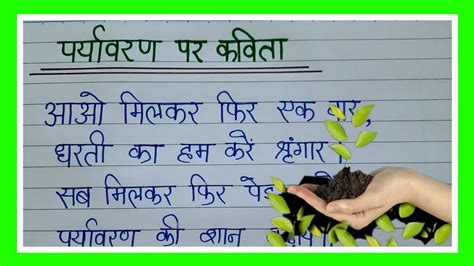 पर्यावरण पर कविता
आओ मिलकर फिर एक बार,
धरती का हम करें श्रृंगार।
सब मिलकर फिर
पर्यावरण की शान